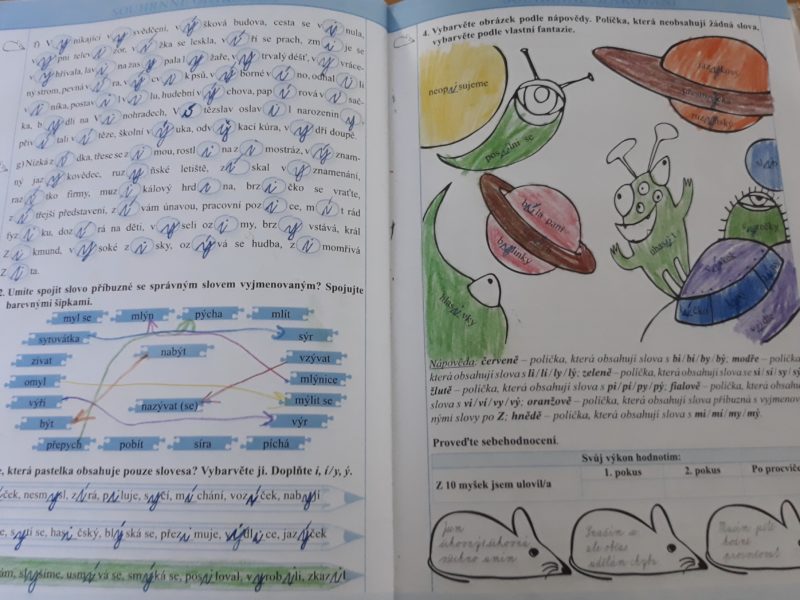 SOUHRNNÉ
f) V ý nikající v y svědčení, v ý šková budova, cesta se v i nula,
v y pni telev i zor, v i žka se leskla, v í ří se prach, zm i je se
v y hřívala, lav i na zas y pala l y žaře, v y trvalý déšť, v y vráce-
ný strom, pevná v í ra, v ý cv i k psů, v ý borné v í no, odhal i li
v i níka, postav i l v i lu, hudební v ý chova, pap í rová v i nač-
ka, b y dlí na V i nohradech, V í tězslav oslav i l narozenin y,
přiv í tali v í těze, školní v ý uka, odv y kací kúra, v y dří doupě.
g) Nízká z i dka, třese se z i mou, rostl i na z i mostráz, v ý znam-
ný jaz y kovědec, ruz y ňské letiště, z í skal v y znamenání,
raz í tko firmy, muz i kálový hrd i na, brz i čko se vraťte,
z í třejší představení, z í vám únavou, pracovní poz i ce, m í t rád
fyz i ku, doz í rá na děti, v y seli oz i my, brz y vstává, král
Z i kmund, v y soké z i sky, oz ý vá se hudba, z i momřivá
Z i ta.
2. Umíte spojit slovo příbuzné se správným slovem vyjmenovaným? Spojujte
barevnými šipkami.
myl se mlýn pýcha mlít
syrovátka sýr
zívat nabýt vzývat
omyl mlýnice
výři nazývat (se) mýlit se
být výr
přepych pobít síra píchá
, která pastelka obsahuje pouze slovesa? Vybarvěte ji. Doplňte i, í/y, ý.
ček, nesmysl, zírá, piluje, syčí, míchání, vozíček, nabyli
e, sytí se, hasičský, blýská se, přezimuje, vidlice, jazýček
ám, slyšíme, usmívá se, smýká se, posiloval, vyrobili, zkazil
4. Vybarvěte obrázek podle nápovědy. Políčka, která neobsahují žádná slova,
vybarvěte podle vlastní fantazie.
neopisujeme
posilním se
jazykový
ruzyňský
bílá paní
bylinky
hlasivky
Nápověda: červeně – políčka, která obsahují slova s bi/bí/by/bý; modře – políčka,
která obsahují slova s li/lí/ly/lý; zeleně – políčka, která obsahují slova se si/sí/sy/sý
žlutě – políčka, která obsahují slova s pi/pí/py/pý; fialově – políčka, která obsahují
slova s vi/ví/vy/vý; oranžově – políčka, která obsahují slova příbuzná s vyjmenova-
nými slovy po Z; hnědě – políčka, která obsahují slova s mi/mí/my/mý.
Proveďte sebehodnocení.
Svůj výkon hodnotím:
1. pokus 2. pokus Po procviče
Z 10 myšek jsem ulovil/a
jsm
šikovný/šikovná
všechno umím
Snažím se
ale občas
udělám chybu
Musím ještě
hodně
procvičovat